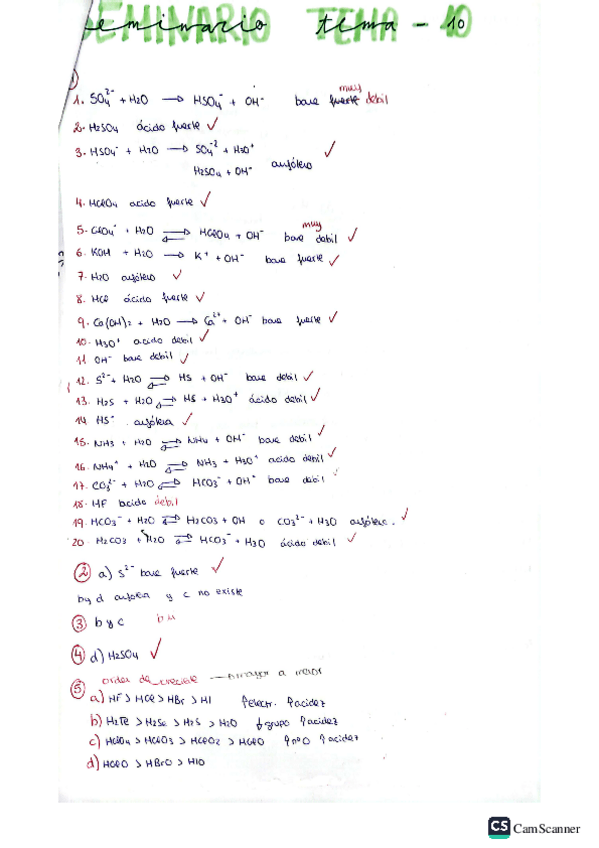 SEMINARIO TEMA - 10
①
muy
1. SO₄²⁻ + H₂O → HSO₄⁻ + OH⁻ base fuerte debil
2. H₂SO₄ ácido fuerte ✓
3. HSO₄⁻ + H₂O → SO₄⁻² + H₃O⁺
H₂SO₄ + OH⁻ anfótero ✓
4. HClO₄ acido fuerte ✓
muy
5. ClO₄⁻ + H₂O ⇌ HClO₄ + OH⁻ base debil ✓
6. KOH + H₂O → K⁺ + OH⁻ base fuerte ✓
7. H₂O anfótero ✓
8. HCl ácido fuerte ✓
9. Ca(OH)₂ + H₂O → Ca²⁺ + OH⁻ base fuerte ✓
10. H₃O⁺ acido debil ✓
11 OH⁻ base debil ✓
12. S²⁻ + H₂O ⇌ HS + OH⁻ base debil ✓
13. H₂S + H₂O ⇌ HS + H₃O⁺ ácido debil ✓
14 HS⁻ anfótera ✓
15. NH₃ + H₂O ⇌ NH₄ + OH⁻ base debil ✓
16. NH₄⁺ + H₂O ⇌ NH₃ + H₃O⁺ acido debil ✓
17. CO₃²⁻ + H₂O ⇌ HCO₃⁻ + OH⁻ base debil ✓
18. HF acido debil
19. HCO₃⁻ + H₂O ⇌ H₂CO₃ + OH o CO₃²⁻ + H₃O anfótero. ✓
20. H₂CO₃ + H₂O ⇌ HCO₃⁻ + H₃O ácido debil ✓
② a) S²⁻ base fuerte ✓
b y d y c no existe
③ b y c
④ d) H₂SO₄ ✓
orden de crecible → mayor a menor
⑤ a) HF > HCl > HBr > HI ↑electr. ↑acidez
b) H₂Te > H₂Se > H₂S > H₂O ↓grupo ↑acidez
c) HClO₄ > HClO₃ > HClO₂ > HClO ↑nºO ↑acidez
d) HClO > HBrO > HIO
CS CamScanner